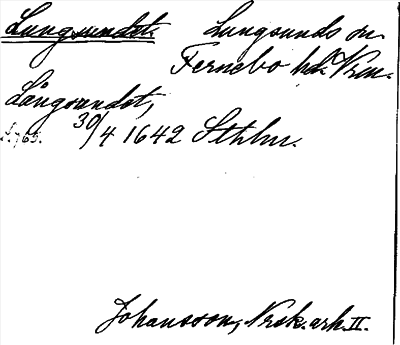 Lungsundet. Lungsunds sn.
Fernebo hd. Vrm.
Långsundet,
S. 765. 30/4 1642 Sthlm.
Johansson, Nrsk. ark. II.